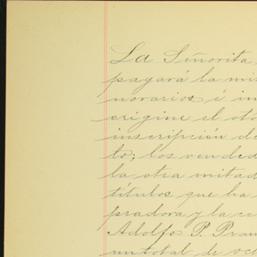 La Señorita
pagará la mi
norarios, é in
origine el oto
inscripción de
to; los vended
la otra mitad
títulos que ha
pradora y la ce
Adolfo P.
un total de oc